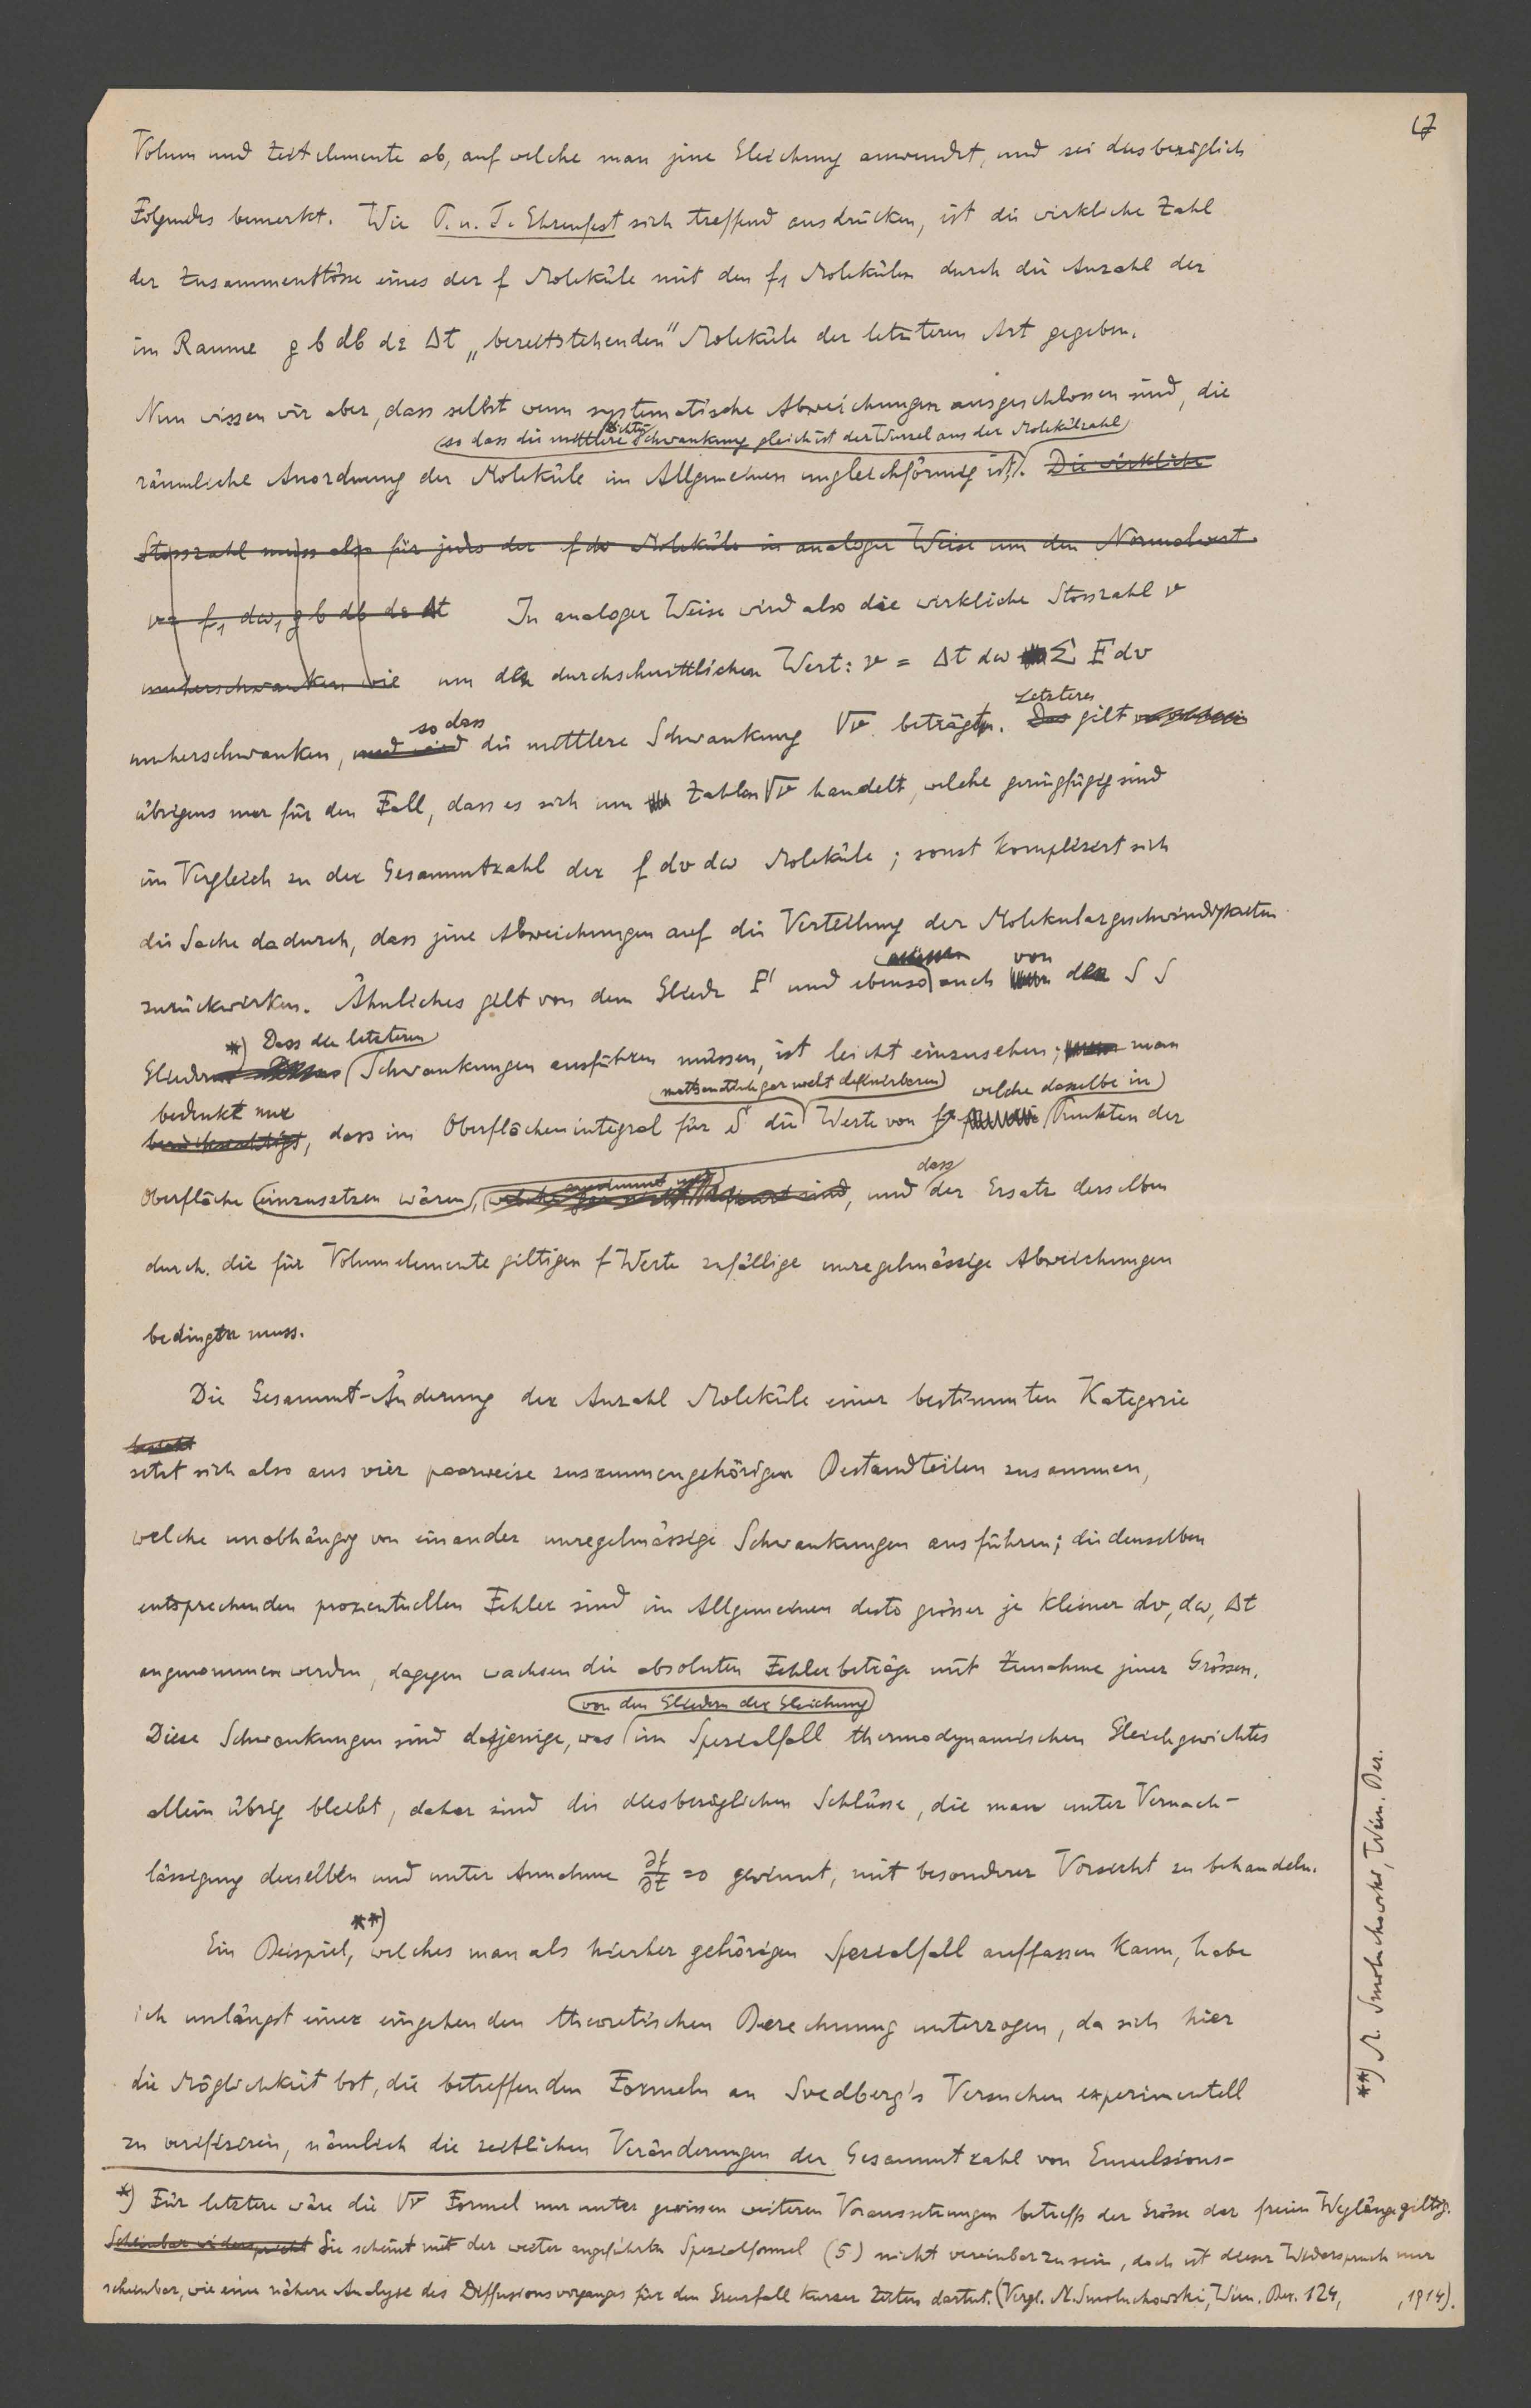 17
Volum und Zeitelemente ab, auf welche man jene Gleichung anwendet, und sei diesbezüglich
Folgendes bemerkt. Wie P. u. T. Ehrenfest sich treffend ausdrücken, ist die wirkliche Zahl
der Zusammenstösse eines der f Moleküle mit den f₁ Molekülen durch die Anzahl der
im Raume g b db dε Δt „bereitstehenden" Moleküle der letzteren Art gegeben.
Nun wissen wir aber, dass selbst wenn systematische Abweichungen ausgeschlossen sind, die
so dass die mittlere Dichte Schwankung gleich ist der Wurzel aus der Molekülzahl
räumliche Anordnung der Moleküle im Allgemeinen ungleichförmig ist. Die wirkliche
Stosszahl muss also für jedes der f dω Moleküle in analoger Weise um den Normalwert
ν = f₁ dω₁ g b db dε Δt In analoger Weise wird also die wirkliche Stosszahl ν
umherschwanken wie um den durchschnittlichen Wert: ν = Δt dω Σ F dv
so dass Letzteres
umherschwanken, und wird die mittlere Schwankung √ν beträgt. Das gilt
übrigens nur für den Fall, dass es sich um Zahlen √ν handelt, welche geringfügig sind
im Vergleich zu der Gesammtzahl der f dv dω Moleküle; sonst kompliziert sich
die Sache dadurch, dass jene Abweichungen auf die Verteilung der Molekulargeschwindigkeiten
müssen von
zurückwirken. Ähnliches gilt von dem Gliede F' und ebenso auch den S S
*) Dass die letzteren
Gliedern Schwankungen ausführen müssen, ist leicht einzusehen; man
mathematisch gar nicht definierbaren welche dasselbe in
bedenkt nur
berücksichtigt, dass im Oberflächenintegral für S die Werte von f Punkten der
dass
Oberfläche einzusetzen wären, welche gar nicht definiert sind, und der Ersatz derselben
durch die für Volumelemente giltigen f Werte zufällige unregelmässige Abweichungen
bedingen muss.
Die Gesammt-Änderung der Anzahl Moleküle einer bestimmten Kategorie
besteht
setzt sich also aus vier paarweise zusammengehörigen Bestandteilen zusammen,
welche unabhängig von einander unregelmässige Schwankungen ausführen; die denselben
entsprechenden prozentuellen Fehler sind im Allgemeinen desto grösser je kleiner dv, dω, Δt
angenommen werden, dagegen wachsen die absoluten Fehlerbeträge mit Zunahme jener Grössen.
von den Gliedern der Gleichung
Diese Schwankungen sind dasjenige, was im Spezialfall thermodynamischen Gleichgewichtes
allein übrig bleibt, daher sind die diesbezüglichen Schlüsse, die man unter Vernach-
lässigung derselben und unter Annahme ∂f/∂t = 0 gewinnt, mit besonderer Vorsicht zu behandeln.
**)
Ein Beispiel, welches man als hierher gehörigen Spezialfall auffassen kann, habe
ich unlängst einer eingehenden theoretischen Berechnung unterzogen, da sich hier
die Möglichkeit bot, die betreffenden Formeln an Svedberg's Versuchen experimentell
zu verifizieren, nämlich die zeitlichen Veränderungen der Gesammtzahl von Emulsions-
*) Für letztere wäre die √ν Formel nur unter gewissen weiteren Voraussetzungen betreffs der Grösse der freien Weglänge giltig.
Scheinbar widerspricht Sie scheint mit der weiter angeführten Spezialformel (5) nicht vereinbar zu sein, doch ist dieser Widerspruch nur
scheinbar, wie eine nähere Analyse des Diffusionsvorganges für den Grenzfall kurzer Zeiten dartut. (Vergl. M. Smoluchowski, Wien. Ber. 124, , 1914).
**) M. Smoluchowski, Wien. Ber.